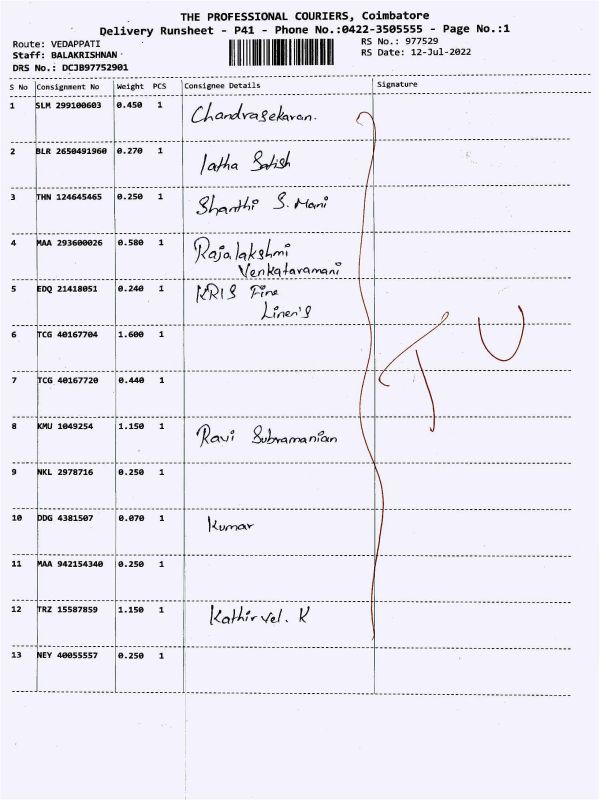 THE PROFESSIONAL COURIERS, Coimbatore
Delivery Runsheet - P41 - Phone No.:0422-3505555 - Page No.:1
Route: VEDAPPATI
Staff: BALAKRISHNAN
DRS No.: DCJB97752901
RS No.: 977529
RS Date: 12-Jul-2022
S No Consignment No Weight PCS Consignee Details Signature
1 SLM 299100603 0.450 1 Chandrasekaran.
2 BLR 2650491960 0.270 1 latha Satish
3 THN 124645465 0.250 1 Shanthi S. Mani
4 MAA 293600026 0.580 1 Rajalakshmi
Venkataramani
5 EDQ 21418051 0.240 1 KRIS Fine
Linen's
6 TCG 40167704 1.600 1
7 TCG 40167720 0.440 1
8 KMU 1049254 1.150 1 Ravi Subramanian
9 NKL 2978716 0.250 1
10 DDG 4381507 0.070 1 Kumar
11 MAA 942154340 0.250 1
12 TRZ 15587859 1.150 1 Kathirvel. K
13 NEY 40055557 0.250 1